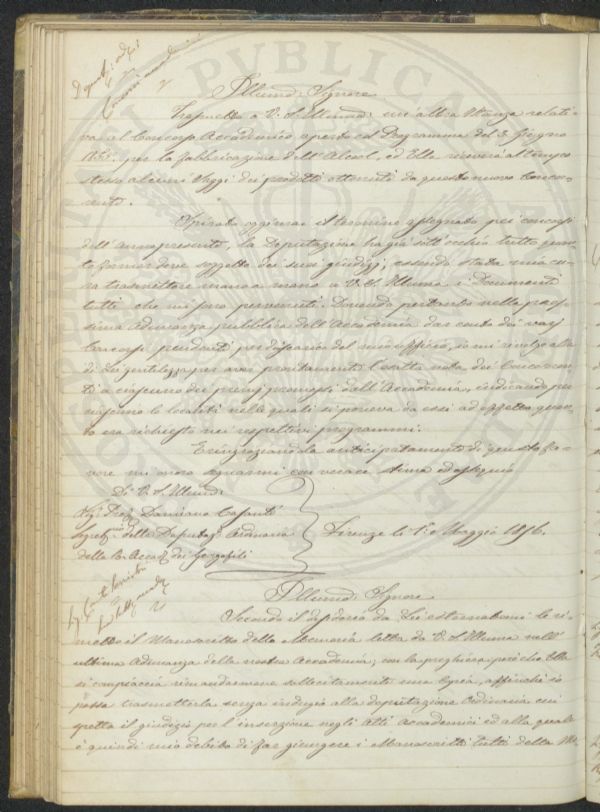 Illumo: Signore
Trasmetto a V. S. Illuma: un'altra Istanza relati-
va al Concorso Accademico aperto col Programma del 3. Giugno
1855. per la fabbricazione dell'Alcool, ed Ella riceverà al tempo
stesso alcuni saggi dei prodotti ottenuti da questo nuovo Concor-
rente.
Spirato oggimai il termine assegnato pei concorsi
dell'anno presente, la Deputazione ha già sott'occhio tutto quan-
to formar deve soggetto dei suoi giudizj, essendo stata mia cu-
ra trasmettere mano a mano a V. S. Illuma i Documenti
tutti che mi sono pervenuti. Dovendo pertanto nella pros-
sima Adunanza pubblica dell'Accademia dar conto dei varj
Concorsi pendenti, per discarico del mio ufficio, io mi rivolgo alla
di Lei gentilezza per aver prontamente l'esatta nota dei Concorren-
ti a ciascuno dei premj promessi dall'Accademia, indicando per
ciascuno le località nelle quali si poneva da essi ad effetto quan-
to era richiesto nei respettivi programmi.
E ringraziandola anticipatamente di questo fa-
vore mi onoro segnarmi con verace stima ed ossequio
Di V. S. Illuma:
Sig. Prof. Damiano Casanti
Segretº della Deputaz. Ordinaria
della R. Accaª dei Georgofili
Firenze li 1º Maggio 1856.
Illumo: Signore
Secondo il desiderio da Lei esternatomi le ri-
metto il Manoscritto della Memoria letta da V. S. Illuma nell'
ultima Adunanza della nostra Accademia; con la preghiera però che Ella
si compiaccia rimandarmene sollecitamente una Copia, affinchè io
possa trasmetterla senza indugio alla deputazione Ordinaria cui
spetta il giudizio per l'inserzione negli Atti Accademici ed alla quale
è quindi mio debito di far giungere i Manoscritti tutti delle Me-